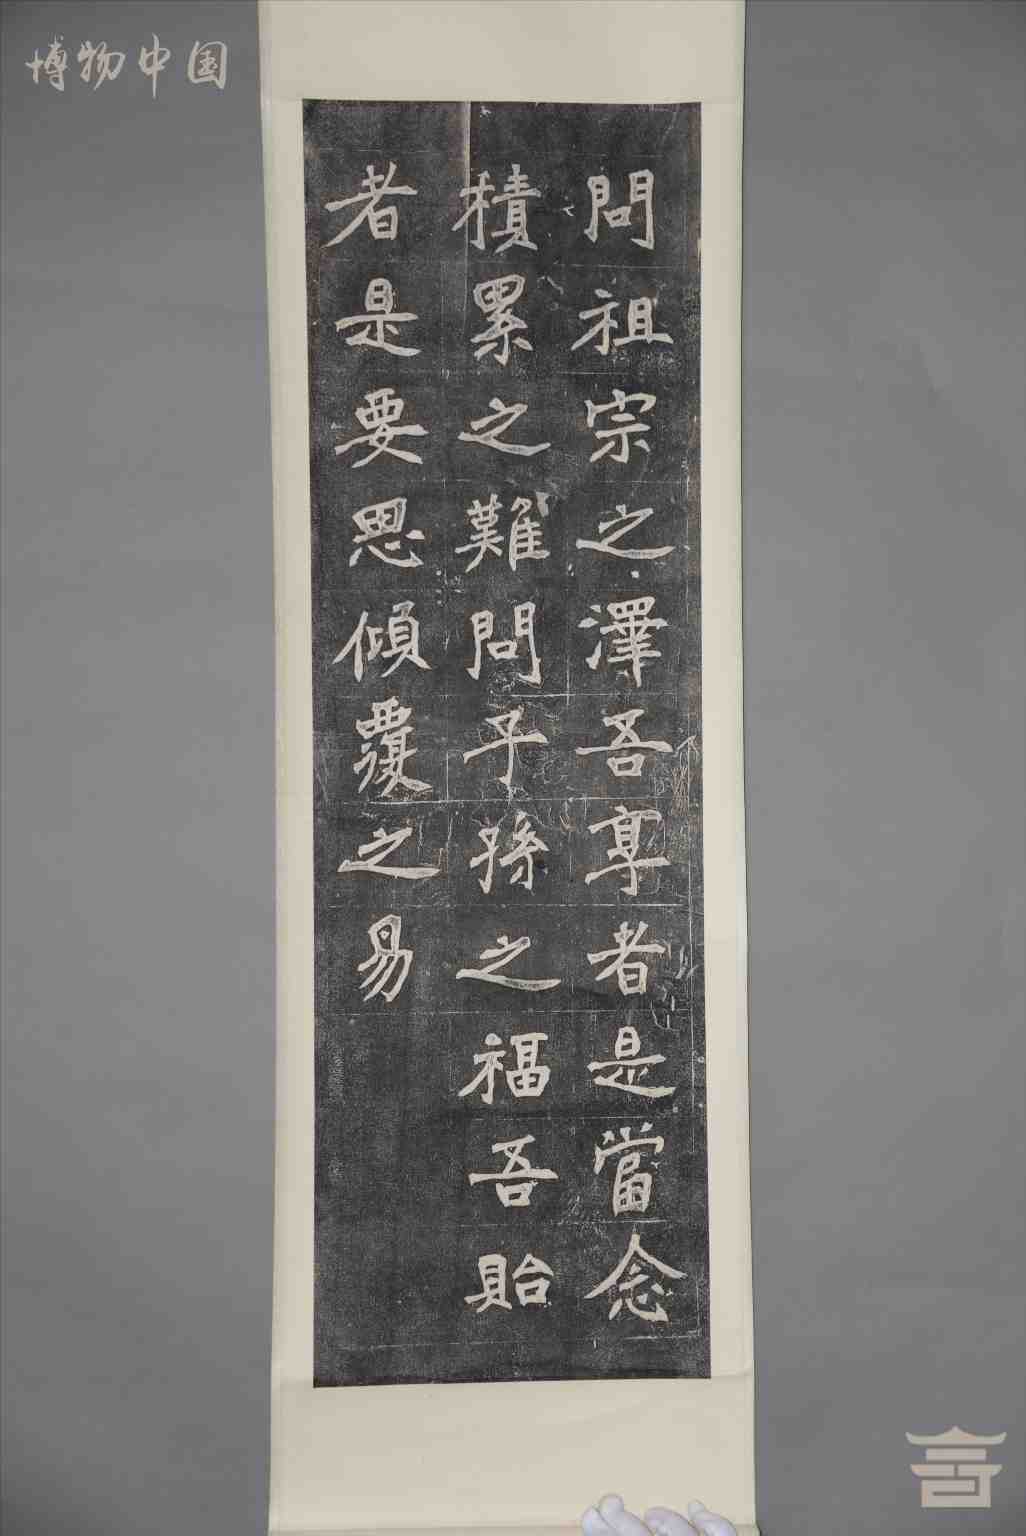 博物中国
問祖宗之澤吾享者是當念
積累之難問子孫之福吾貽
者是要思傾覆之易